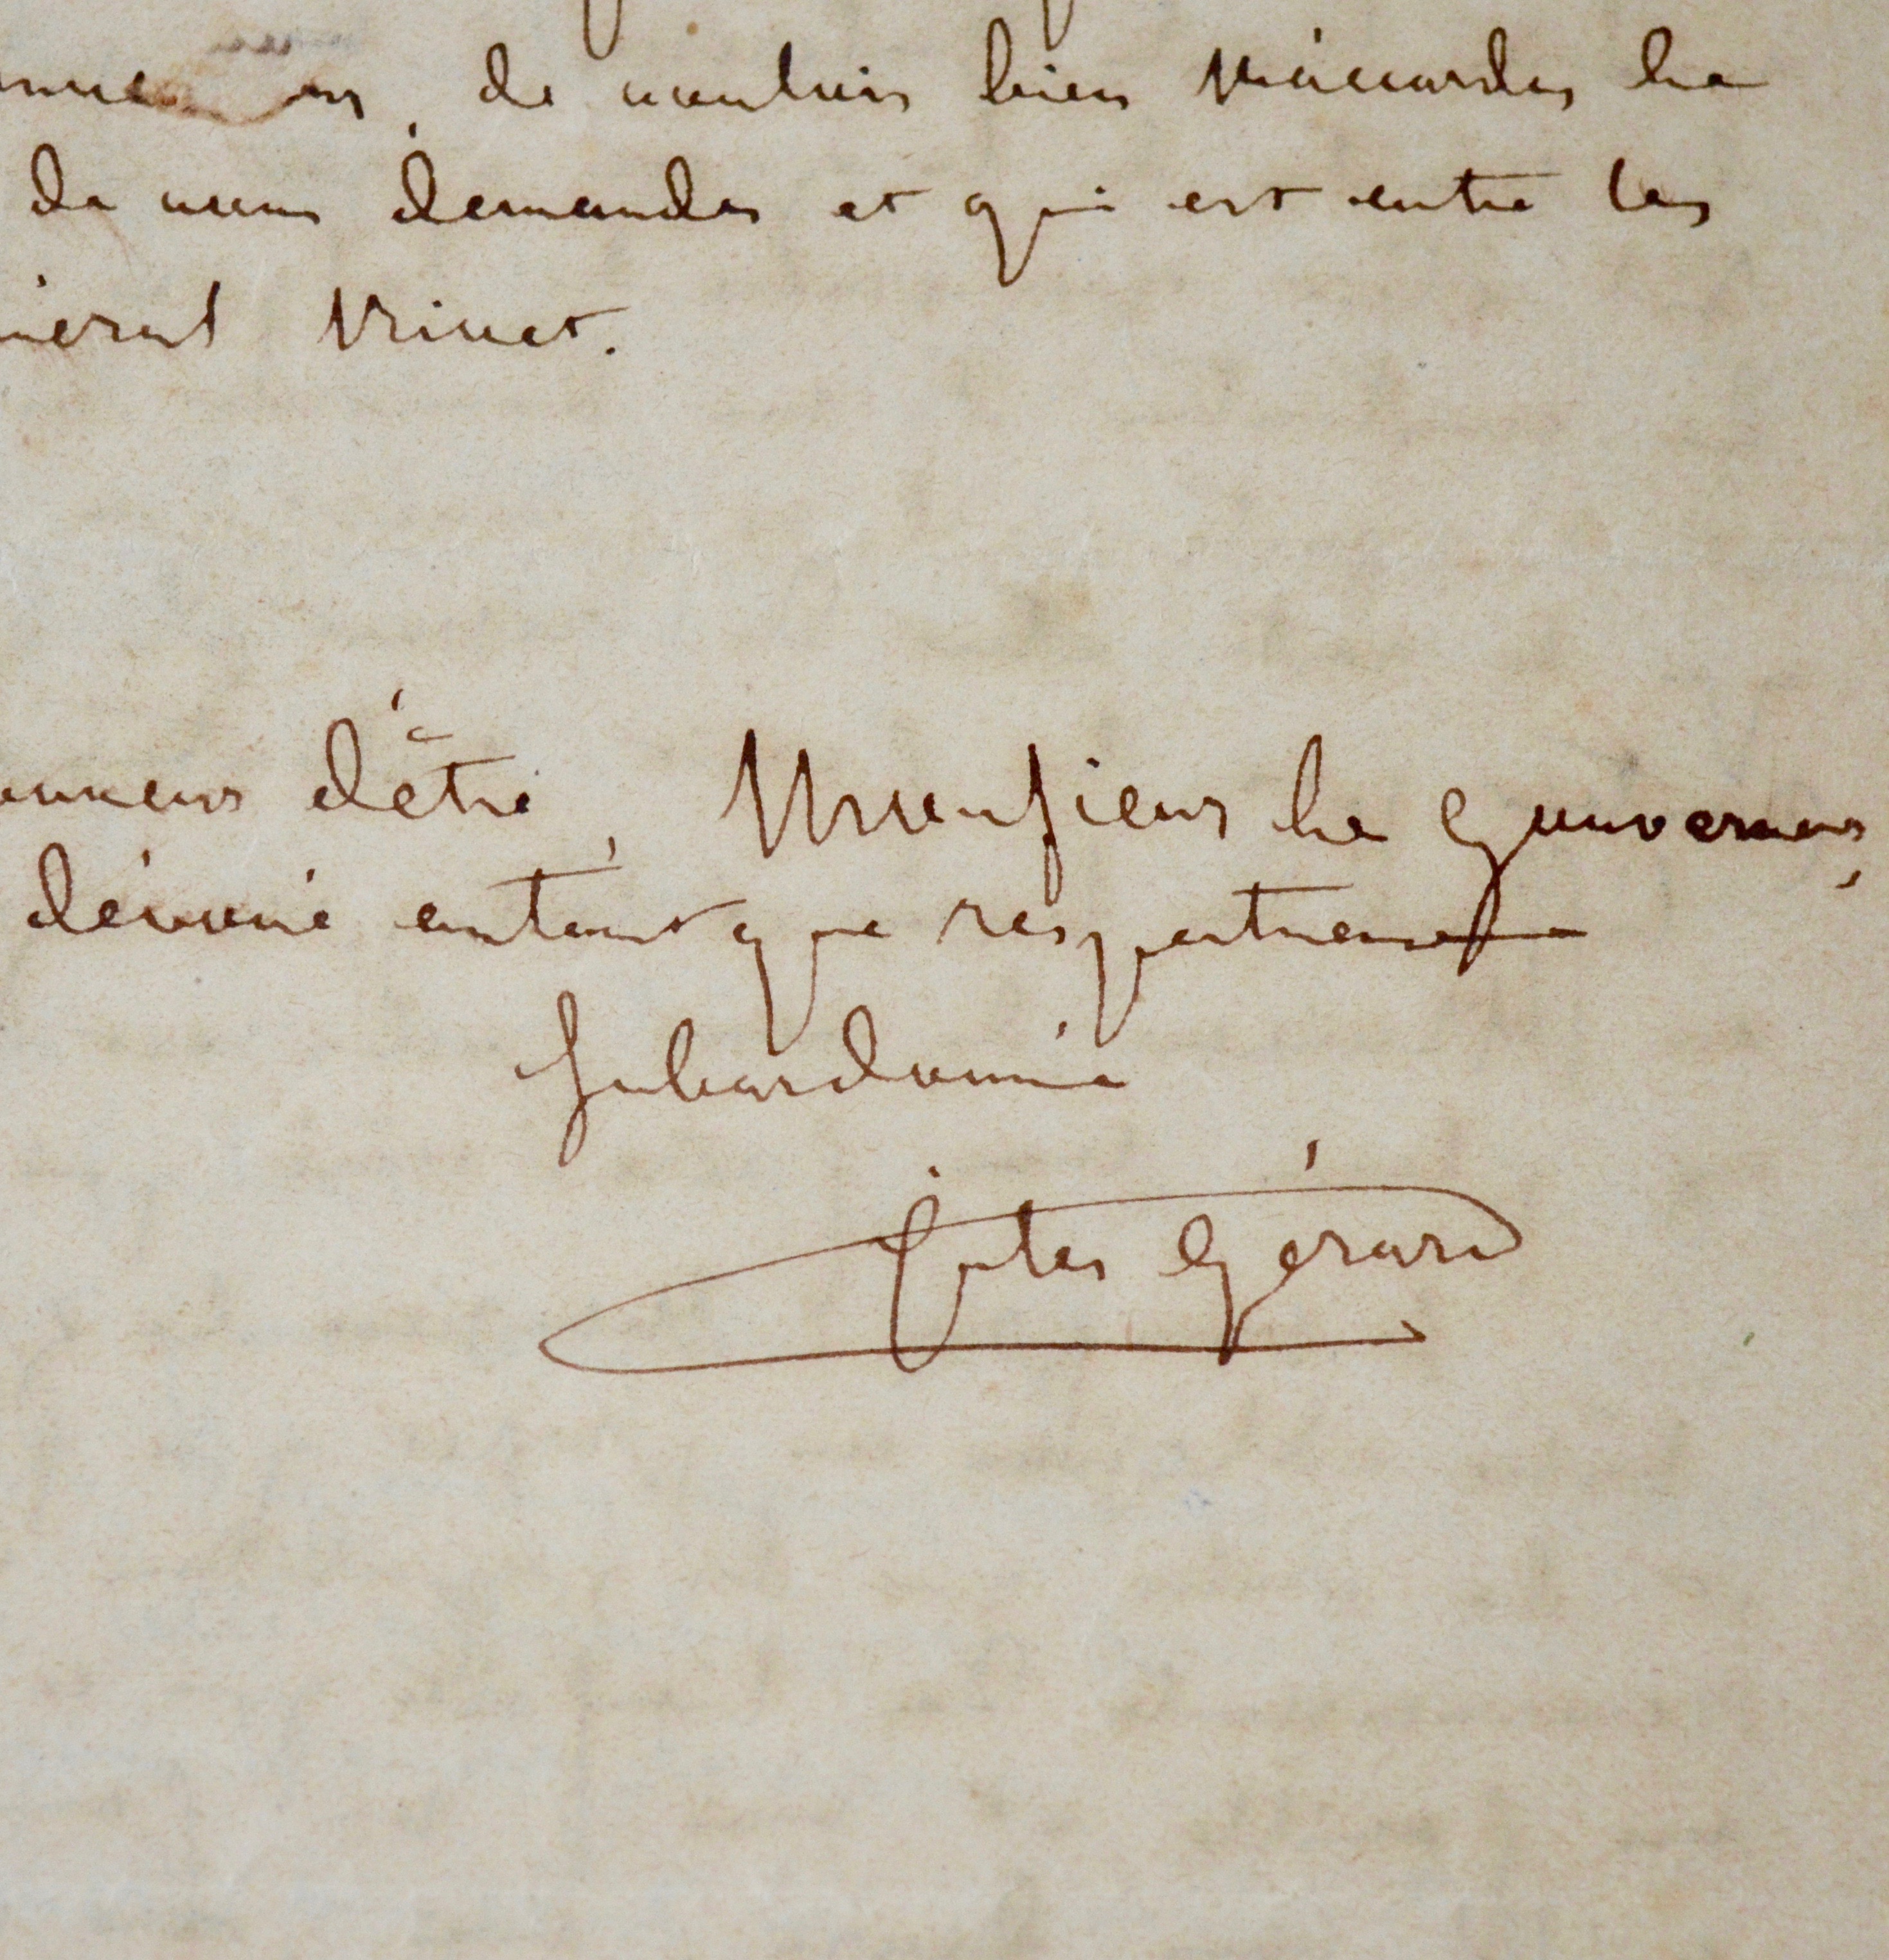 de vouloir bien m'accorder le
de mes demandes et qui est entre les
néral Trinet.
onneur d'être, Monsieur le Gouverneur,
dévoué autant que respectueux
subordonné
Jules Gérard